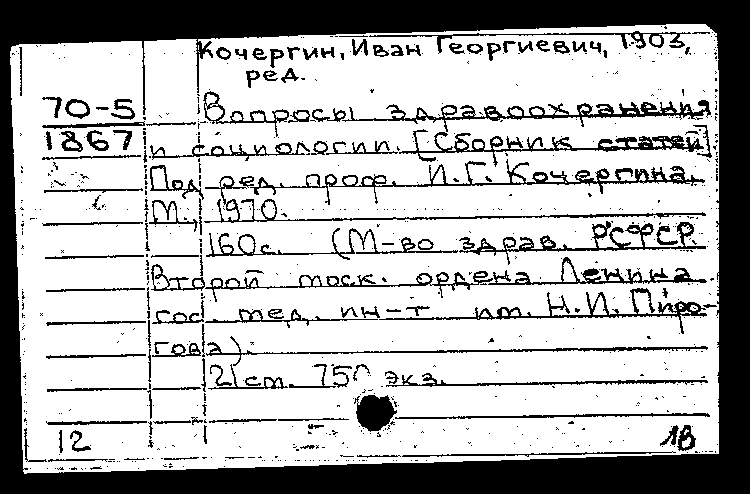 Кочергин, Иван Георгиевич, 1903,
ред.
70-5 Вопросы здравоохранения
1867 и социологии. [Сборник статей].
Под ред. проф. И.Г. Кочергина.
М., 1970.
160с. (М-во здрав. РСФСР.
Второй моск. ордена Ленина
гос. мед. ин-т им. Н.И. Пиро-
гова).
21 ст. 750 экз.
12 18